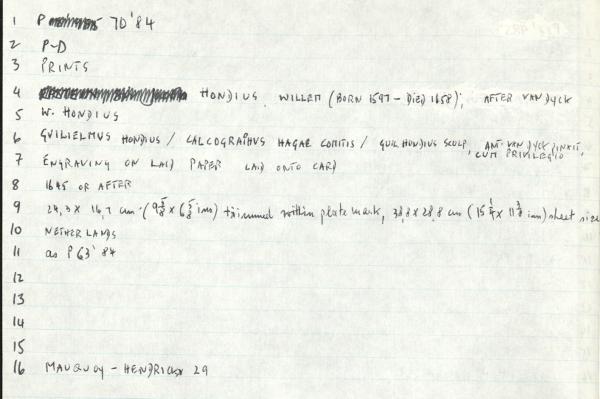 1 P 70'84
2 P-D
3 PRINTS
4 HONDIUS, WILLEM (BORN 1597 - DIED 1658); AFTER VAN DYCK
5 W. HONDIUS
6 GUILIELMUS HONDIUS / CALCOGRAPHUS HAGAE COMITIS / GUIL HONDIUS SCULP, ANT. VAN DYCK PINXIT, CUM PRIVILEGIO
7 ENGRAVING ON LAID PAPER LAID ONTO CARD
8 1645 OR AFTER
9 24,3 x 16,7 cm. (9 5/8 x 6 5/8 ins) trimmed within plate mark, 38,8 x 28,8 cm (15 1/4 x 11 3/8 ins) sheet size
10 NETHERLANDS
11 as P 63'84
12
13
14
15
16 MAUQUOY - HENDRICKX 29